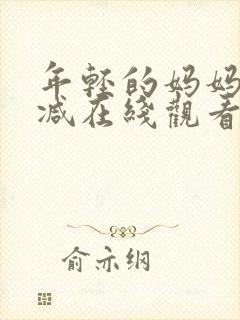 年轻的妈妈
减在线觀看
俞亦纲